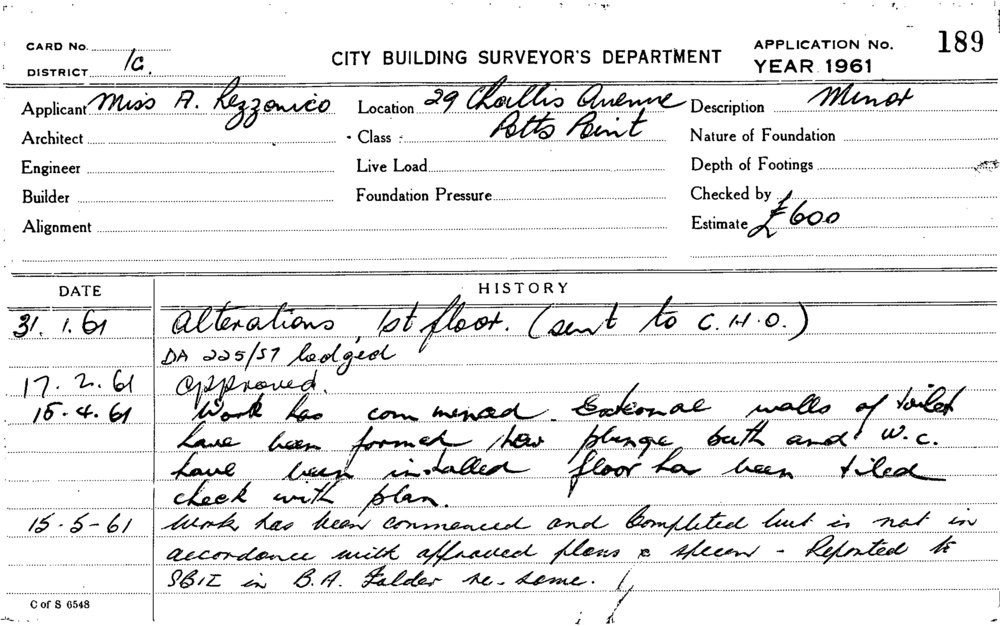 CARD No.
DISTRICT 1C.
CITY BUILDING SURVEYOR'S DEPARTMENT
APPLICATION No. 189
YEAR 1961
Applicant Miss A. Rezzonico
Location 29 Challis Avenue
Description Minor
Architect
Class Potts Point
Nature of Foundation
Engineer
Live Load
Depth of Footings
Builder
Foundation Pressure
Checked by
Alignment
Estimate £600
DATE HISTORY
31. 1. 61 Alterations, 1st floor. (sent to C.H.O.)
DA 225/57 lodged
17. 2. 61 approved.
15. 4. 61 Work has commenced. External walls of toilet
have been formed, new plunge bath and W.C.
have been installed floor has been tiled
check with plan.
15-5-61 Work has been commenced and completed but is not in
accordance with approved plans & specen - Reported to
SBIE in B.A. Folder re-same.
C of S 6548